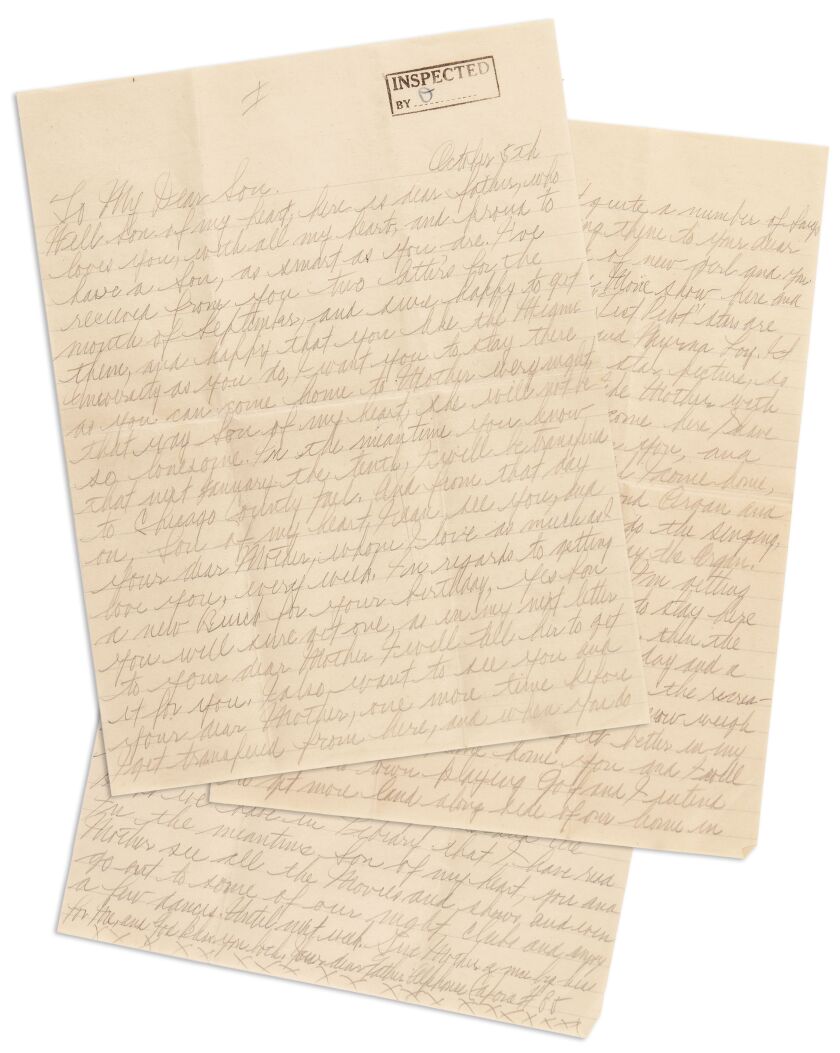 INSPECTED
BY
October 5th
To My Dear Son.
Well son of my heart, here is dear father, who
loves you, with all my heart, and proud to
have a Son, as smart as you, are. I've
received from you two letters for the
month of September, and sure happy to get
them, and happy that you like the
as you do, I want you to stay there
as you can come home to Mother every night,
that way Son of my heart, she will not be
so lonesome. In the meantime you know
that next January the tenth, I will be transfered
to Chicago County Jail. And from that day
on, Son of my heart, I can see you, and
your dear Mother, whom I love as much as I
love you, every week. In regards to getting
a new Buick for your birthday, Yes Son
you will sure get one, as in my next letter
to your dear Mother I will tell her to get
it for you. I also want to see you and
your dear Mother, one more time before
I get transfered from here, and when you do
quite a number of
to your dear
of new and you
Movie show here and
stars are
and Myrna Loy. It
star picture, is
Mother with
come here I have
you, and
I come home,
Organ and
the singing.
the Organ.
I'm getting
to stay here
then the
day and a
the recrea-
now weigh
better in my
home you and I will
own playing Golf and I intend
to get more land along side of our home in
have in that I have read
In the meantime Son of my heart, you and
Mother see all the Movies and shows, and even
go out to some of our night clubs and enjoy
a few dances. Until next week. Give Mother a nice big kiss
for Me, and God bless you both, Your dear Father Alphonse Capone # 85
XXXXXXXXXXXXXX